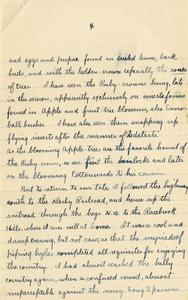 4
and eggs and pupae found in curled leaves, bark,
buds, and with the Golden-crown especially the cones
of trees. I have seen the Ruby-crowns living, late
in the season, apparently exclusively on insect forms
found in Apple and fruit tree blossoms, also Snow-
ball bushes. I have also seen them snapping up
flying insects after the manner of Redstarts
as the blooming Apple trees are the favorite haunt of
the Ruby crown, so are first the hemlocks and later on
the blooming Cottonwoods to his cousin.
But to return to our tale. I followed the highway
south to the Derby Railroad, and hence up the
railroad through the bogs N.W. to the Racebrook
Hills, where I am well at home. It was a cool and
damp evening, but not raw; so that the myriads of
piping hylas completed all requisites for enjoying
the country. I had almost reached the hilly
country again, when a confused sound, almost
inseparable from the noisy